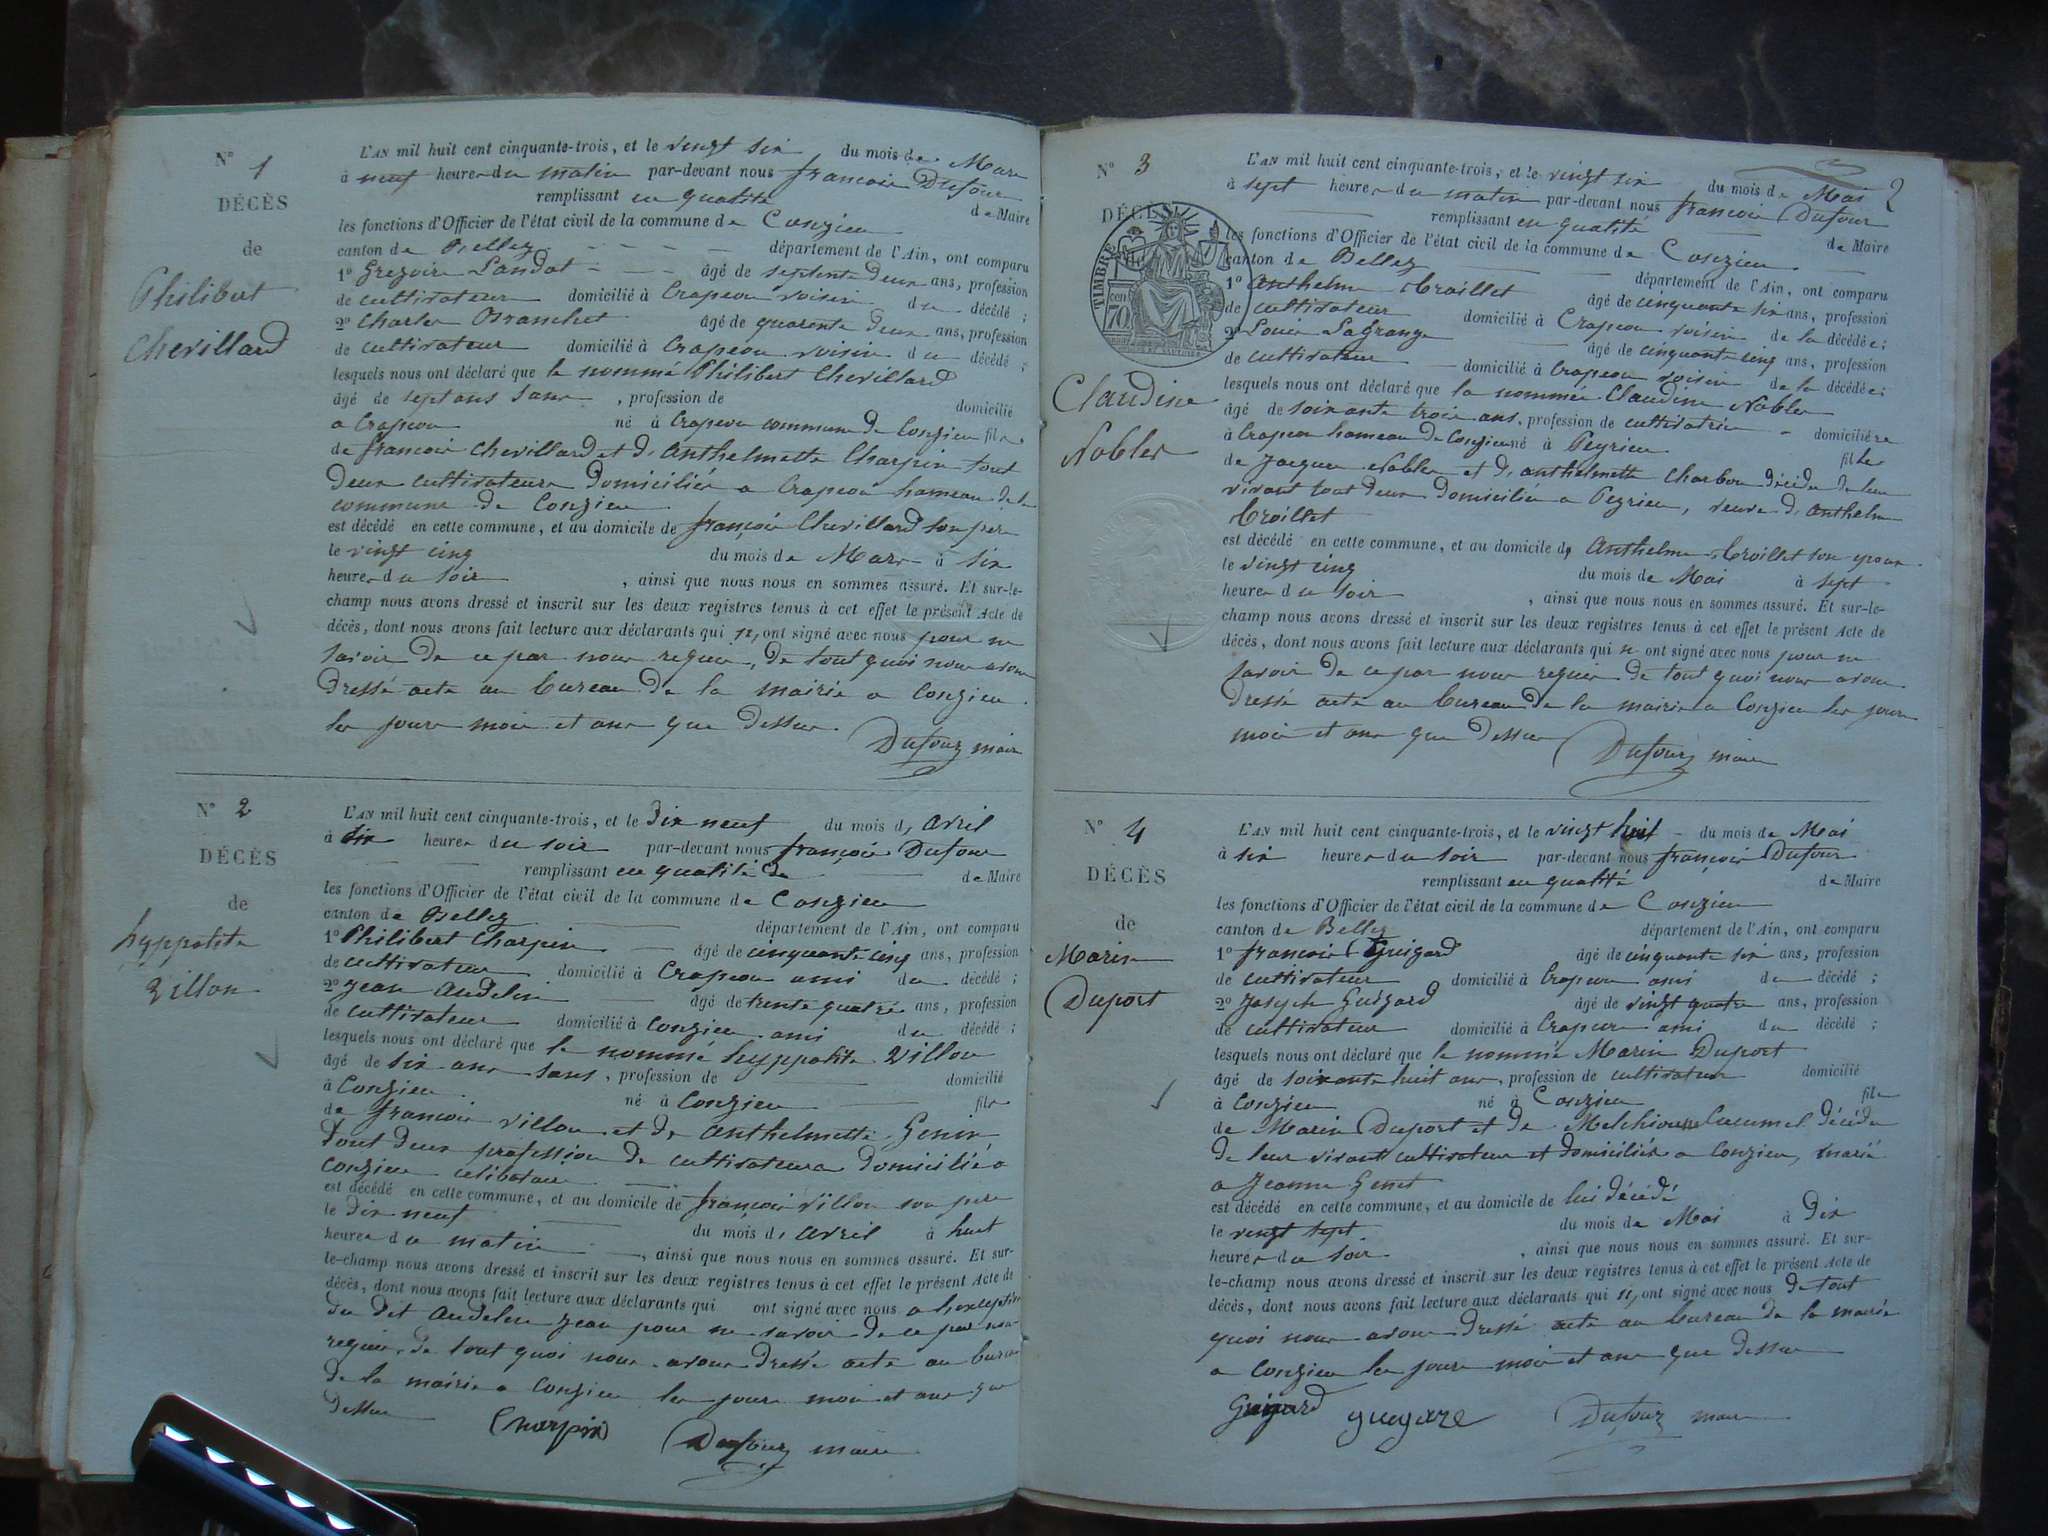 N° 1
DÉCÈS
de
Philibert
Chevillard
L'AN mil huit cent cinquante-trois, et le vingt six du mois de Mars
à neuf heures du matin par-devant nous françois Dufour
remplissant en qualité de Maire
les fonctions d'Officier de l'état civil de la commune de Conzieu
canton de Belley département de l'Ain, ont comparu
1° Gregoire Landot âgé de septente deux ans, profession
de cultivateur domicilié à Crapeou voisin du décédé ;
2° Charles Branchet âgé de quarente deux ans, profession
de cultivateur domicilié à Crapeou voisin du décédé ;
lesquels nous ont déclaré que le nommé Philibert Chevillard
âgé de sept ans sans , profession de domicilié
a Crapeou né à Crapeou commune de Conzieu fils
de françois Chevillard et d, Anthelmette Charpin tout
deux cultivateurs domiciliés a Crapeou hameau de la
commune de Conzieu
est décédé en cette commune, et au domicile de françois Chevillard son père
le vingt cinq du mois de Mars à six
heures du soir , ainsi que nous nous en sommes assuré. Et sur-le-
champ nous avons dressé et inscrit sur les deux registres tenus à cet effet le présent Acte de
décès, dont nous avons fait lecture aux déclarants qui n, ont signé avec nous pour ne
savoir de ce par nous requis, de tout quoi nous avons
dressé acte au bureau de la mairie a Conzieu
les jours mois et ans que dessus.
Dufour maire
N° 2
DÉCÈS
de
hyppolite
Villon
L'AN mil huit cent cinquante-trois, et le dix neuf du mois d, avril
à six heures du soir par-devant nous françois Dufour
remplissant en qualité de de Maire
les fonctions d'Officier de l'état civil de la commune de Conzieu
canton de Belley département de l'Ain, ont comparu
1° Philibert Charpin âgé de cinquante cinq ans, profession
de cultivateur domicilié à Crapeou ami du décédé ;
2° Jean Audelin âgé de trente quatre ans, profession
de cultivateur domicilié à Conzieu ami du décédé ;
lesquels nous ont déclaré que le nommé hyppolite Villon
âgé de six ans sans , profession de domicilié
à Conzieu né à Conzieu fils
de françois Villon et d, Anthelmette Genin
tout deux profession de cultivateurs domicilié a
Conzieu celibataire
est décédé en cette commune, et au domicile de françois Villon son père
le dix neuf du mois d, avril à huit
heures du matin , ainsi que nous nous en sommes assuré. Et sur-
le-champ nous avons dressé et inscrit sur les deux registres tenus à cet effet le présent Acte de
décès, dont nous avons fait lecture aux déclarants qui ont signé avec nous a l'exeption
du dit Audelin Jean pour ne savoir de ce par nous
requis, de tout quoi nous avons dressé acte au bureau
de la mairie a Conzieu les jours mois et ans que
dessus
Charpin Dufour maire
N° 3
DÉCÈS
TIMBRE
70 cen
Claudine
Nobles
L'AN mil huit cent cinquante-trois, et le vingt six du mois de Mai 2
à sept heures du matin par-devant nous françois Dufour
remplissant en qualité de Maire
les fonctions d'Officier de l'état civil de la commune de Conzieu
canton de Belley département de l'Ain, ont comparu
1° Anthelme Croillet âgé de cinquante six ans, profession
de cultivateur domicilié à Crapeou voisin de la décédée ;
2° Louis Lagrange âgé de cinquante cinq ans, profession
de cultivateur domicilié à Crapeou voisin de la décédée ;
lesquels nous ont déclaré que la nommée Claudine Nobles
âgé de soixante trois ans, profession de cultivatrice domiciliée
à Crapeou hameau de Conzieu né à Peyrieu fille
de Jacques Nobles et d, anthelmette Charbon décédés de leur
vivant tout deux domiciliés a Peyrieu, veuve d, Anthelme
Croillet
est décédé en cette commune, et au domicile d, Anthelme Croillet son epoux
le vingt cinq du mois de Mai à sept
heures du soir , ainsi que nous nous en sommes assuré. Et sur-le-
champ nous avons dressé et inscrit sur les deux registres tenus à cet effet le présent Acte de
décès, dont nous avons fait lecture aux déclarants qui n ont signé avec nous pour ne
savoir de ce par nous requis de tout quoi nous avons
dressé acte au bureau de la mairie a Conzieu les jours
mois et ans que dessus Dufour maire
N° 4
DÉCÈS
de
Marin
Duport
L'AN mil huit cent cinquante-trois, et le vingt huit du mois de Mai
à six heures du soir par-devant nous françois Dufour
remplissant en qualité de Maire
les fonctions d'Officier de l'état civil de la commune de Conzieu
canton de Belley département de l'Ain, ont comparu
1° françois Guigard âgé de cinquante six ans, profession
de cultivateur domicilié à Crapeou ami du décédé ;
2° Joseph Guigard âgé de vingt quatre ans, profession
de cultivateur domicilié à Crapeou ami du décédé ;
lesquels nous ont déclaré que le nommé Marin Duport
âgé de soixante huit ans, profession de cultivateur domicilié
à Conzieu né à Conzieu fils
de Marin Duport et de Melchionne Cucumel décédés
de leur vivant cultivateur et domiciliés a Conzieu, marié
a Jeanne Genet
est décédé en cette commune, et au domicile de lui décédé
le vingt sept du mois de Mai à dix
heures du soir , ainsi que nous nous en sommes assuré. Et sur-
le-champ nous avons dressé et inscrit sur les deux registres tenus à cet effet le présent Acte de
décès, dont nous avons fait lecture aux déclarants qui n, ont signé avec nous de tout
quoi nous avons dressé acte au bureau de la mairie
a Conzieu les jours mois et ans que dessus
Guigard guigard Dufour maire